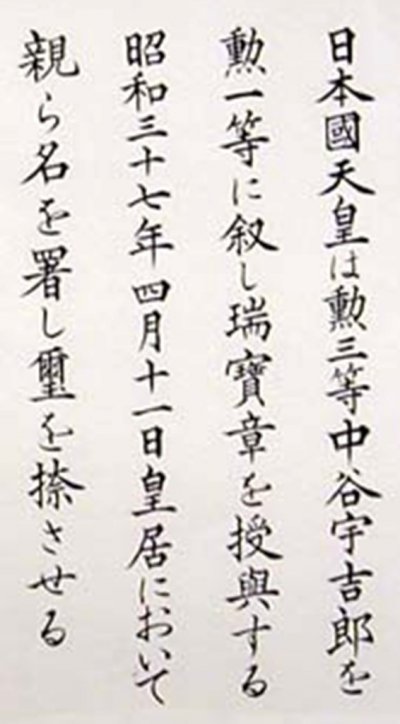 日本國天皇は勲三等中谷宇吉郎を
勲一等に叙し瑞寶章を授與する
昭和三十七年四月十一日皇居において
親ら名を署し璽を捺させる